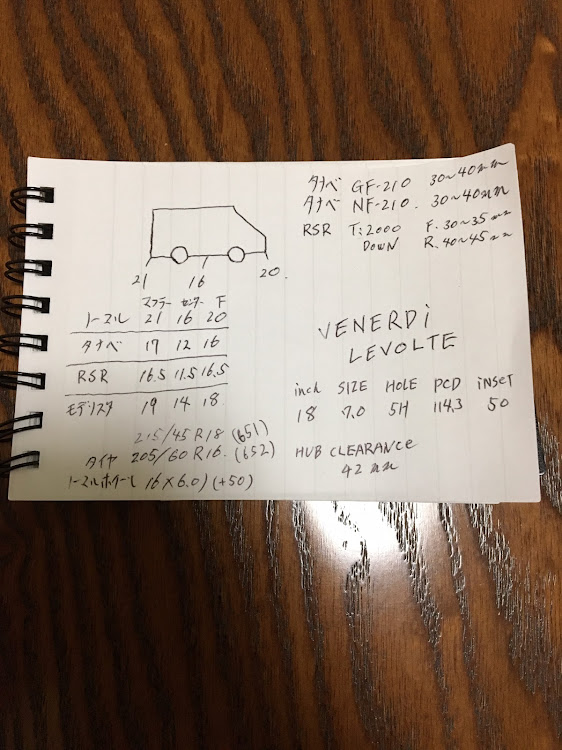 タナベ GF-210 30~40mm
タナベ NF-210. 30~40mm
RSR Ti2000 F. 30~35mm
DOWN R. 40~45mm
21 16 20.
マフラー センター F
ノーマル 21 16 20
タナベ 17 12 16
RSR 16.5 11.5 16.5
モデリスタ 19 14 18
215/45 R18 (651)
タイヤ 205/60 R16. (652)
ノーマルホイール 16×6.0J (+50)
VENERDi
LEVOLTE
inch SIZE HOLE PCD iNSET
18 7.0 5H 114.3 50
HUB CLEARANCE
42mm